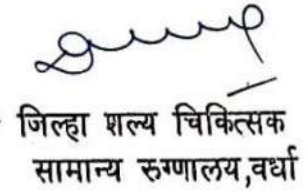 जिल्हा शल्य चिकित्सक
सामान्य रुग्णालय,वर्धा